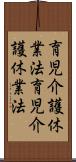 育児介護休
業法育児介
護休業法